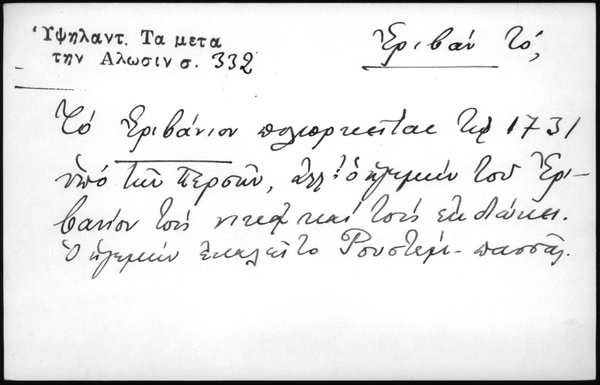 Ὑψηλαντ. Τα μετα
την Αλωσιν σ. 332
Ἐριβάν τό,
Τό Ἐριβάνιον πολιορκεῖται τῷ 1731
ὑπό τῶν Περσῶν, ἀλλ' ὁ ἡγεμών τοῦ Ἐρι-
βανίου τούς νικᾷ καί τούς ἐκδιώκει.
Ὁ ἡγεμών ἐκαλεῖτο Ρουστέμ-πασσᾶς.